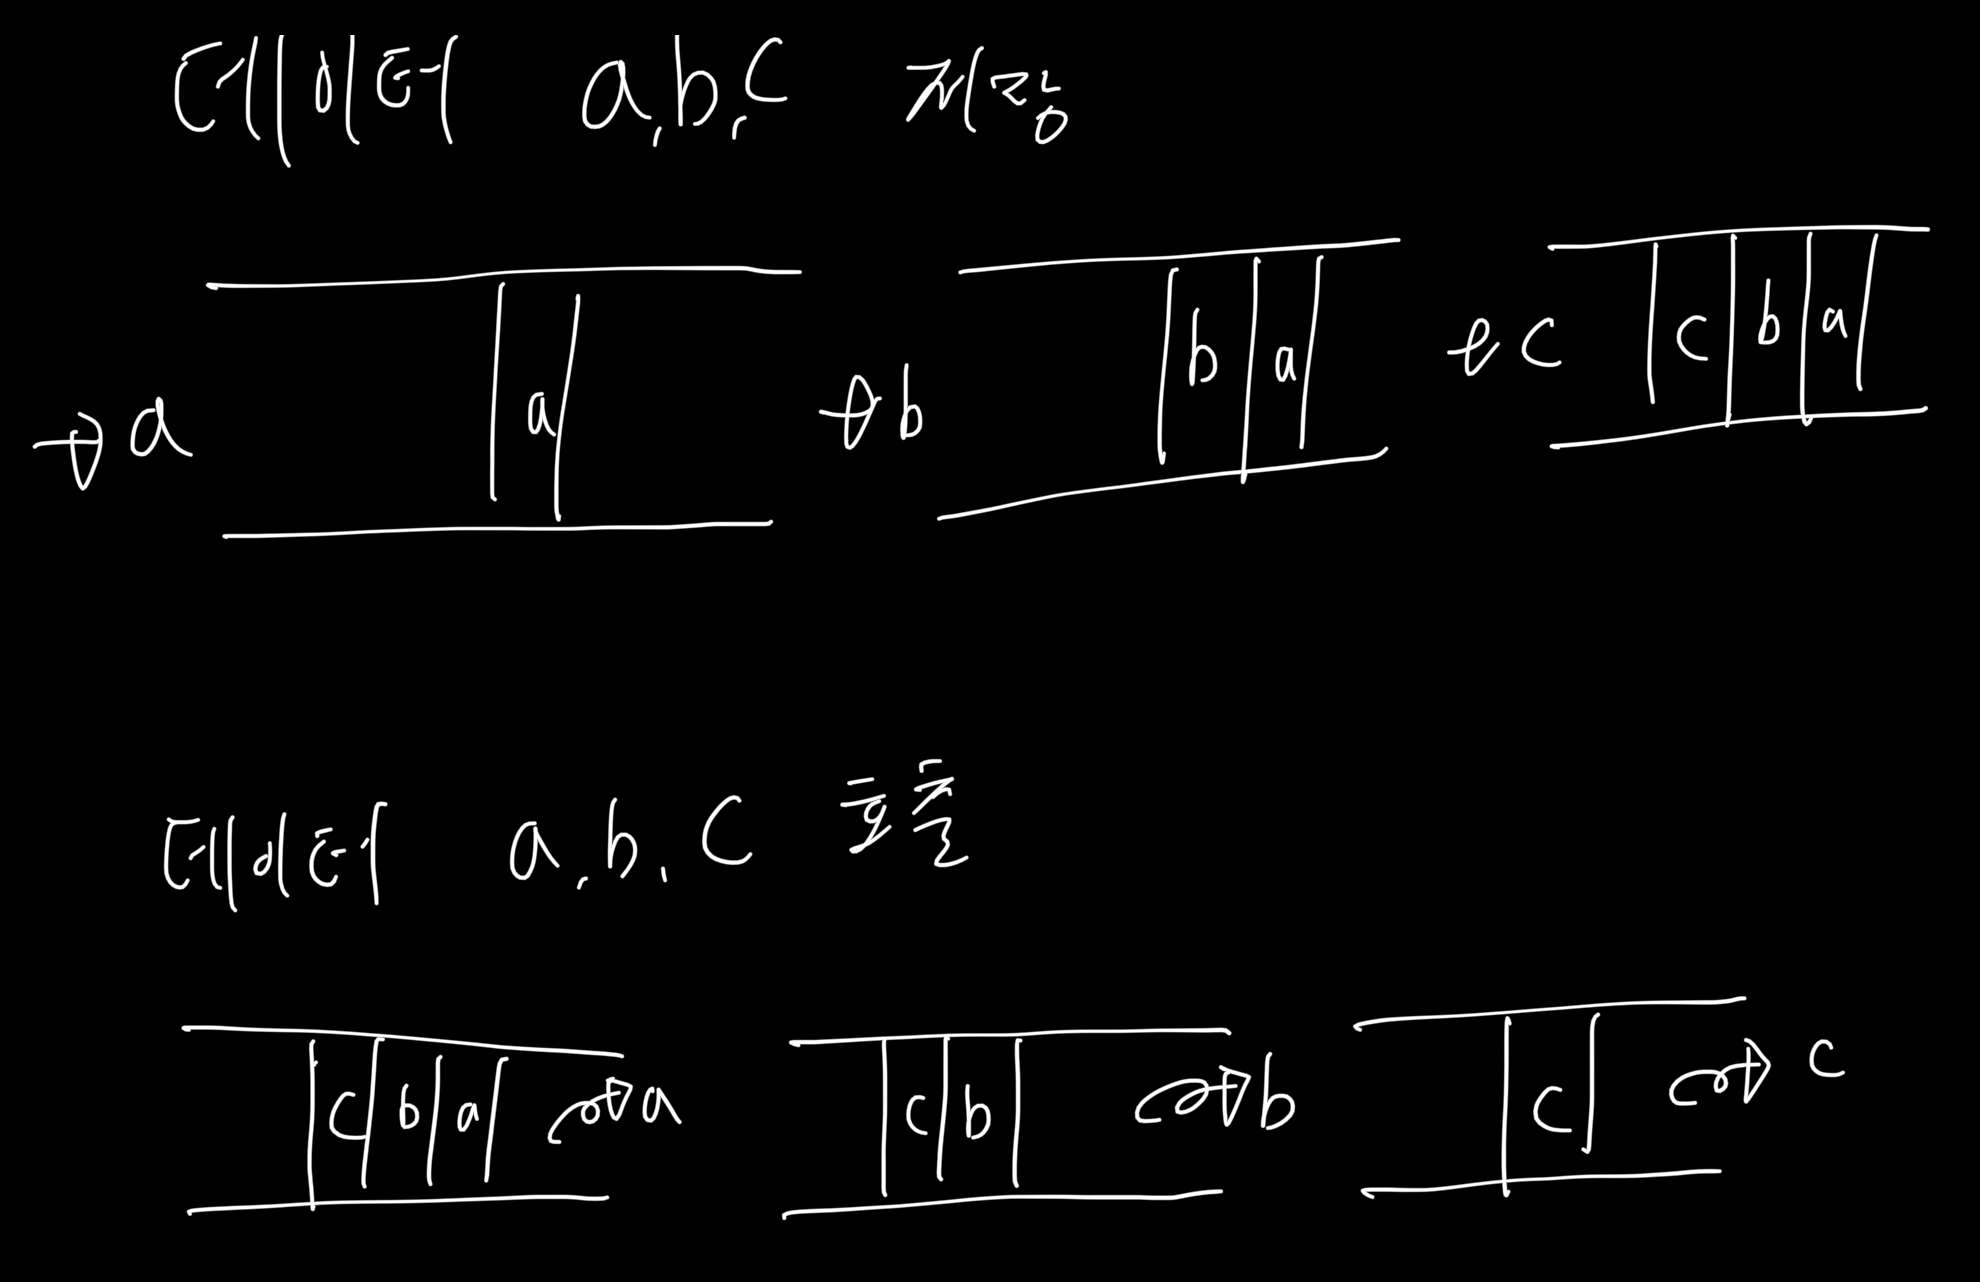 데이터 a, b, c 저장
a a b b a c c b a
데이터 a, b, c 호출
c b a a c b b c c